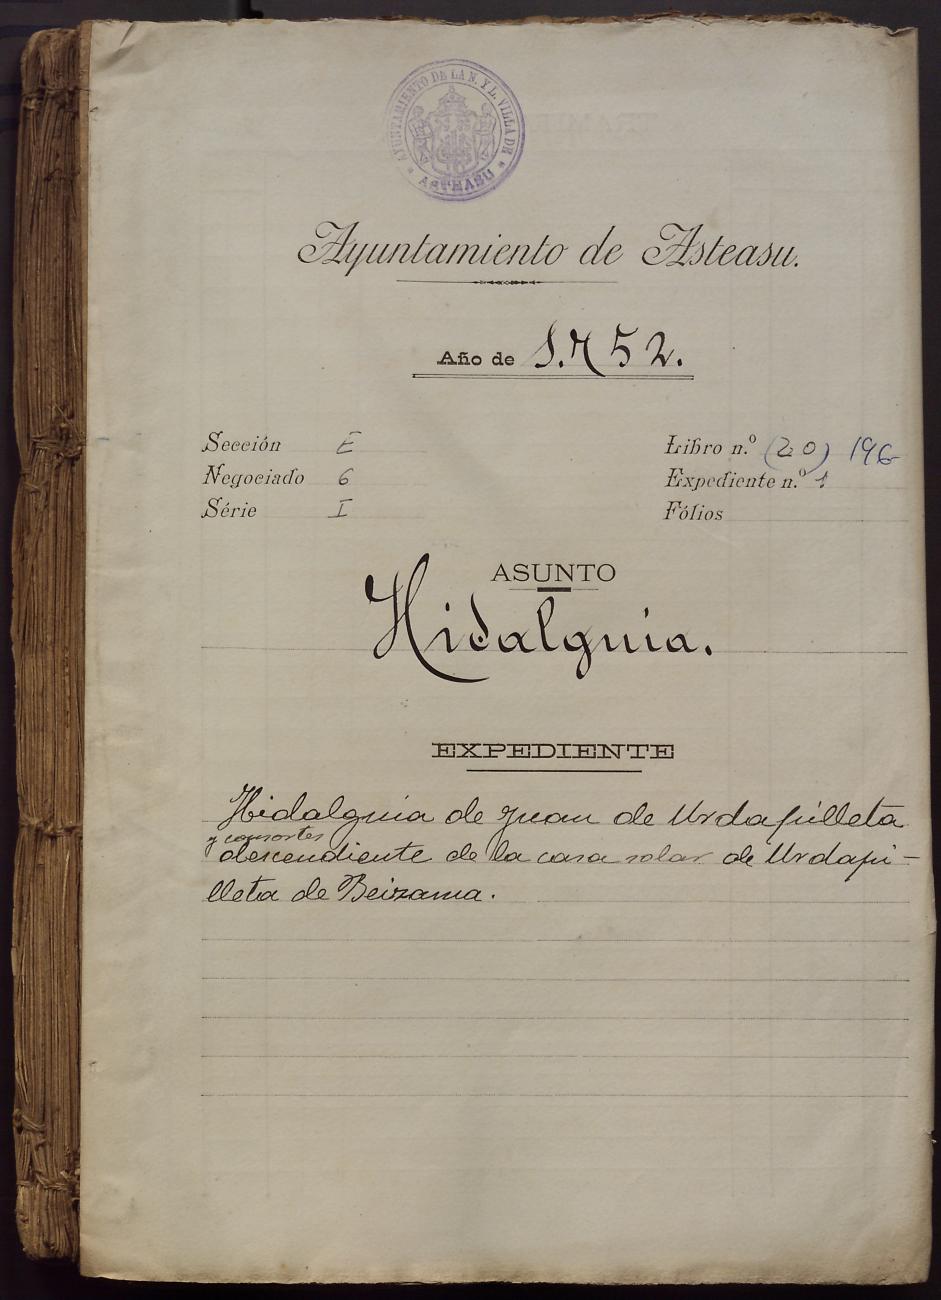 AYUNTAMIENTO DE LA N. Y L. VILLA DE
* ASTEASU *
Ayuntamiento de Asteasu.
Año de 1.752.
Sección E
Libro n.º (20) 196
Negociado 6
Expediente n.º 1
Série I
Fólios
ASUNTO
Hidalguia.
EXPEDIENTE
Hidalguia de Juan de Urdapilleta
y consortes
descendiente de la casa solar de Urdapi-
lleta de Beizama.